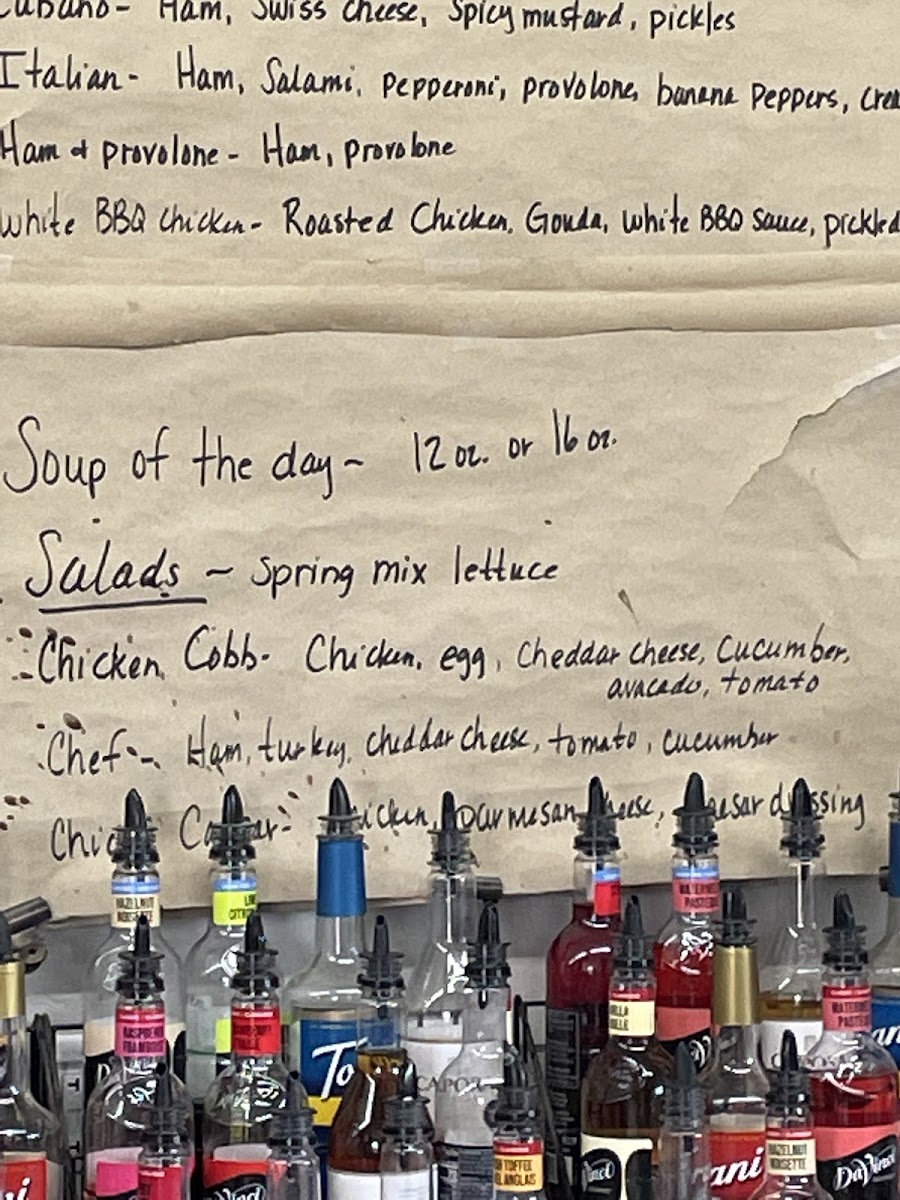 Cubano- Ham, Swiss cheese, Spicy mustard, pickles
Italian- Ham, Salami, pepperoni, provolone, banana peppers,
Ham & provolone- Ham, provolone
White BBQ Chicken- Roasted Chicken, Gouda, white BBQ sauce, pickled
Soup of the day~ 12 oz. or 16 oz.
Salads ~ spring mix lettuce
Chicken Cobb- Chicken, egg, Cheddar cheese, Cucumber,
avacado, tomato
Chef~- Ham, turkey, cheddar cheese, tomato, cucumber
parmesan cheese, dressing
HAZELNUT
NOISETTE
RASPBERRY
FRAMBOISE
WATERMELON
PASTEQUE
TOFFEE
HAZELNUT
NOISETTE
DaVinci